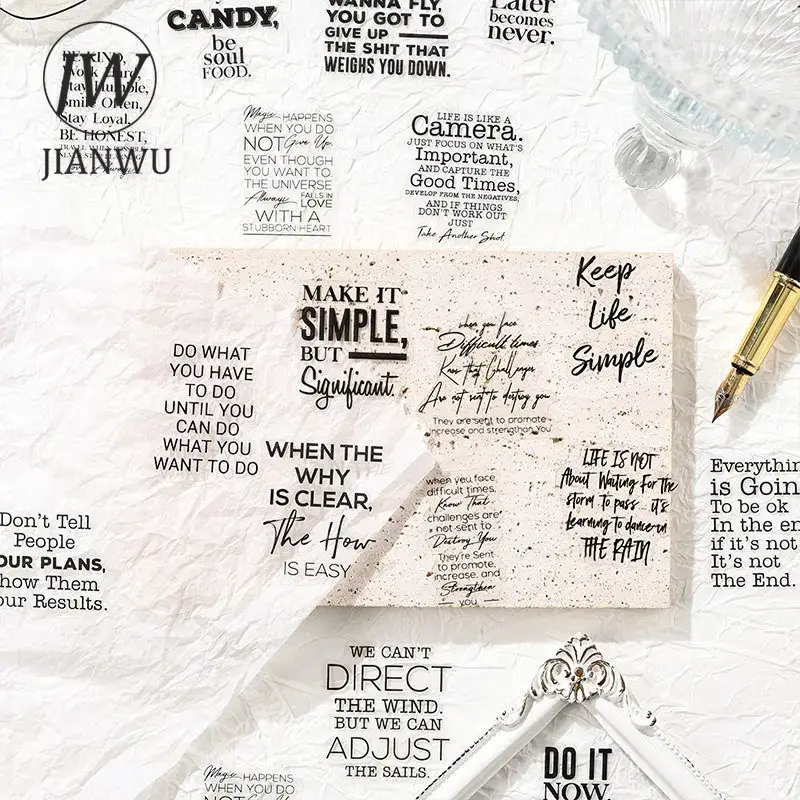 CANDY,
be
soul
FOOD.
WANNA FLY,
YOU GOT TO
GIVE UP
THE SHIT THAT
WEIGHS YOU DOWN.
Later
becomes
never.
JW
JIANWU
Stay Loyal,
BE HONEST,
Magic HAPPENS
WHEN YOU DO
NOT Give Up,
EVEN THOUGH
YOU WANT TO.
THE UNIVERSE
Always FALLS IN
LOVE
WITH A
STUBBORN HEART
LIFE IS LIKE A
Camera.
JUST FOCUS ON WHAT'S
Important,
AND CAPTURE THE
Good Times,
DEVELOP FROM THE NEGATIVES,
AND IF THINGS
DON'T WORK OUT
JUST
Take Another Shot.
MAKE IT
SIMPLE,
BUT
Significant.
DO WHAT
YOU HAVE
TO DO
UNTIL YOU
CAN DO
WHAT YOU
WANT TO DO
WHEN THE
WHY
IS CLEAR,
The How
IS EASY
when you face
Difficult times
Know that Challenges
Are not sent to destroy you
They are sent to promote
increase and strengthan you
when you face
difficult times,
Know That
challenges are
not sent to
Destroy You
They're Sent
to promote,
increase, and
Strengthen
you
Keep
Life
Simple
LIFE IS NOT
About Waiting For the
storm to pass.. it's
learning to dance in
THE RAIN
Everythin
is Goin
To be ok
In the en
if it's not
It's not
The End.
Don't Tell
People
OUR PLANS,
how Them
our Results.
WE CAN'T
DIRECT
THE WIND.
BUT WE CAN
ADJUST
THE SAILS.
Magic HAPPENS
WHEN YOU DO
DO IT
NOW.